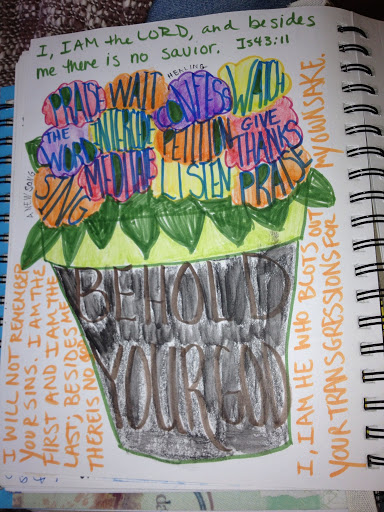 I, I AM the LORD, and besides
me there is no savior. Is 43:11
HEALING
PRAISE WAIT CONFESS WATCH
THE WORD INTERCEDE PETITION GIVE THANKS
SING MEDITATE LISTEN PRAISE
A NEW SONG
BEHOLD
YOUR GOD
I WILL NOT REMEMBER
YOUR SINS. I AM THE
FIRST AND I AM THE
LAST; BESIDES ME
THERE IS NO GOD
I, I AM HE WHO BLOTS OUT
YOUR TRANSGRESSIONS FOR MY OWN SAKE.